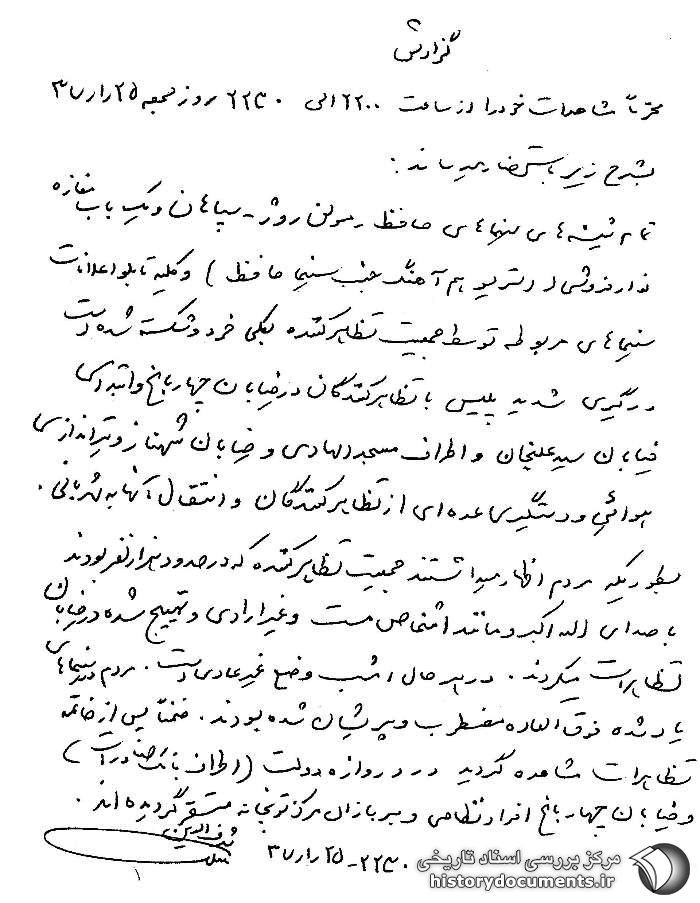 گزارش
محترماً مشاهدات خود را از ساعت ۲۲۰۰ الی ۲۲۳۰ روز جمعه ۲۵ر
بشرح زیر باستحضار میرساند :
تمام شیشه های سینماهای حافظ - مولن روژ - سپاهان و یک باب مغازه
نوار فروشی ( استریو هم آهنگ جنب سینما حافظ ) و کلیه تابلو اعلانات
سینماهای مربوطه توسط جمعیت تظاهر کننده بکلی خرد و شکسته شده است
درگیری شدید پلیس با تظاهرکنندگان در خیابان چهارباغ و ابتدای
خیابان سید علیخان و اطراف مسجد الهادی و خیابان شهناز و تیراندازی
هوائی و دستگیری عده ای از تظاهر کنندگان و انتقال آنها به شهربانی .
بطوریکه مردم اظهار میداشتند جمعیت تظاهر کننده که در حدود هزار نفر بودند
با صدای الله اکبر و مانند اشخاص مست و غیر ارادی و تهییج شده در خیابان
تظاهرات میکردند . در هر حال امشب وضع غیر عادی است . مردم در سینماهای
یاد شده فوق العاده مضطرب و پریشان شده بودند . ضمناً پس از خاتمه
تظاهرات مشاهده گردید در دروازه دولت ( اطراف بانک صادرات )
و خیابان چهارباغ افراد نظامی و سربازان مرکز توپخانه مستقر گردیده اند .
شرف الدین
۲۲۳۰ -
۱
مرکز بررسی اسناد تاریخی
historydocuments.ir